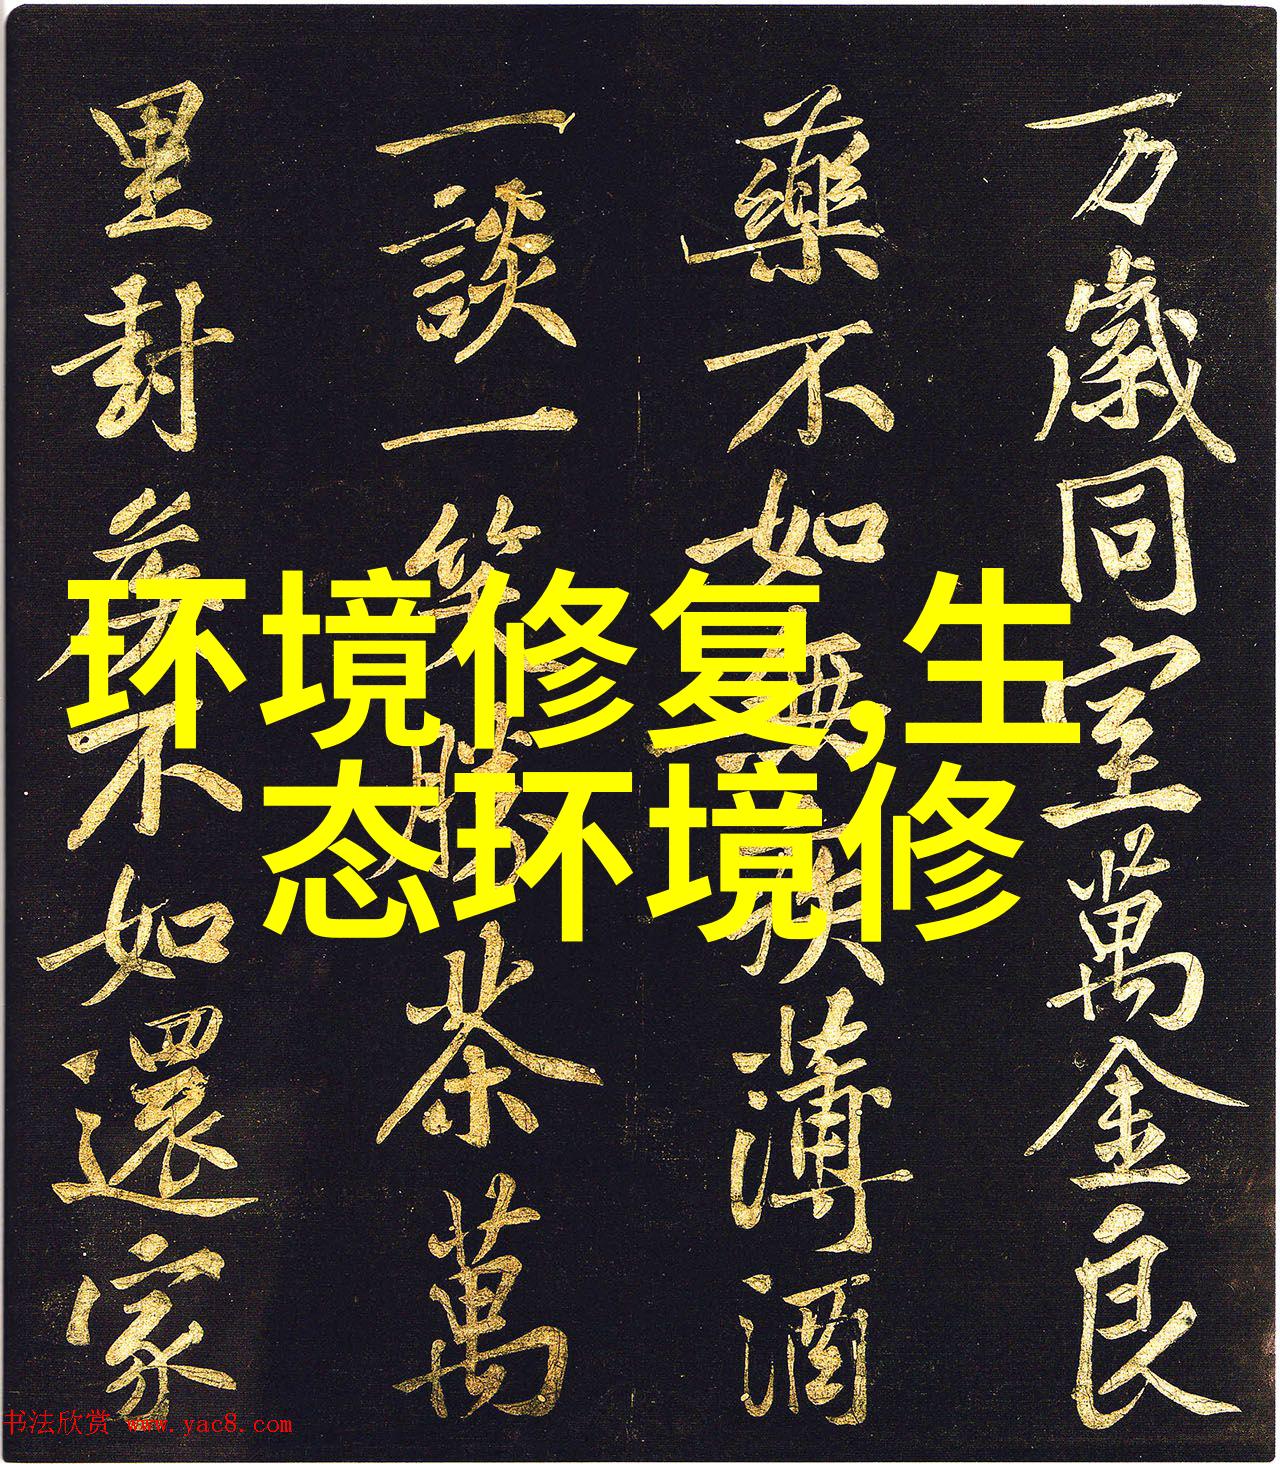 万歲同室萬金良
藥不如無疾薄酒
一談一笑勝茶萬
里封侯不如還家
环境修复,生
态环境修
书法欣赏 www.yac8.com